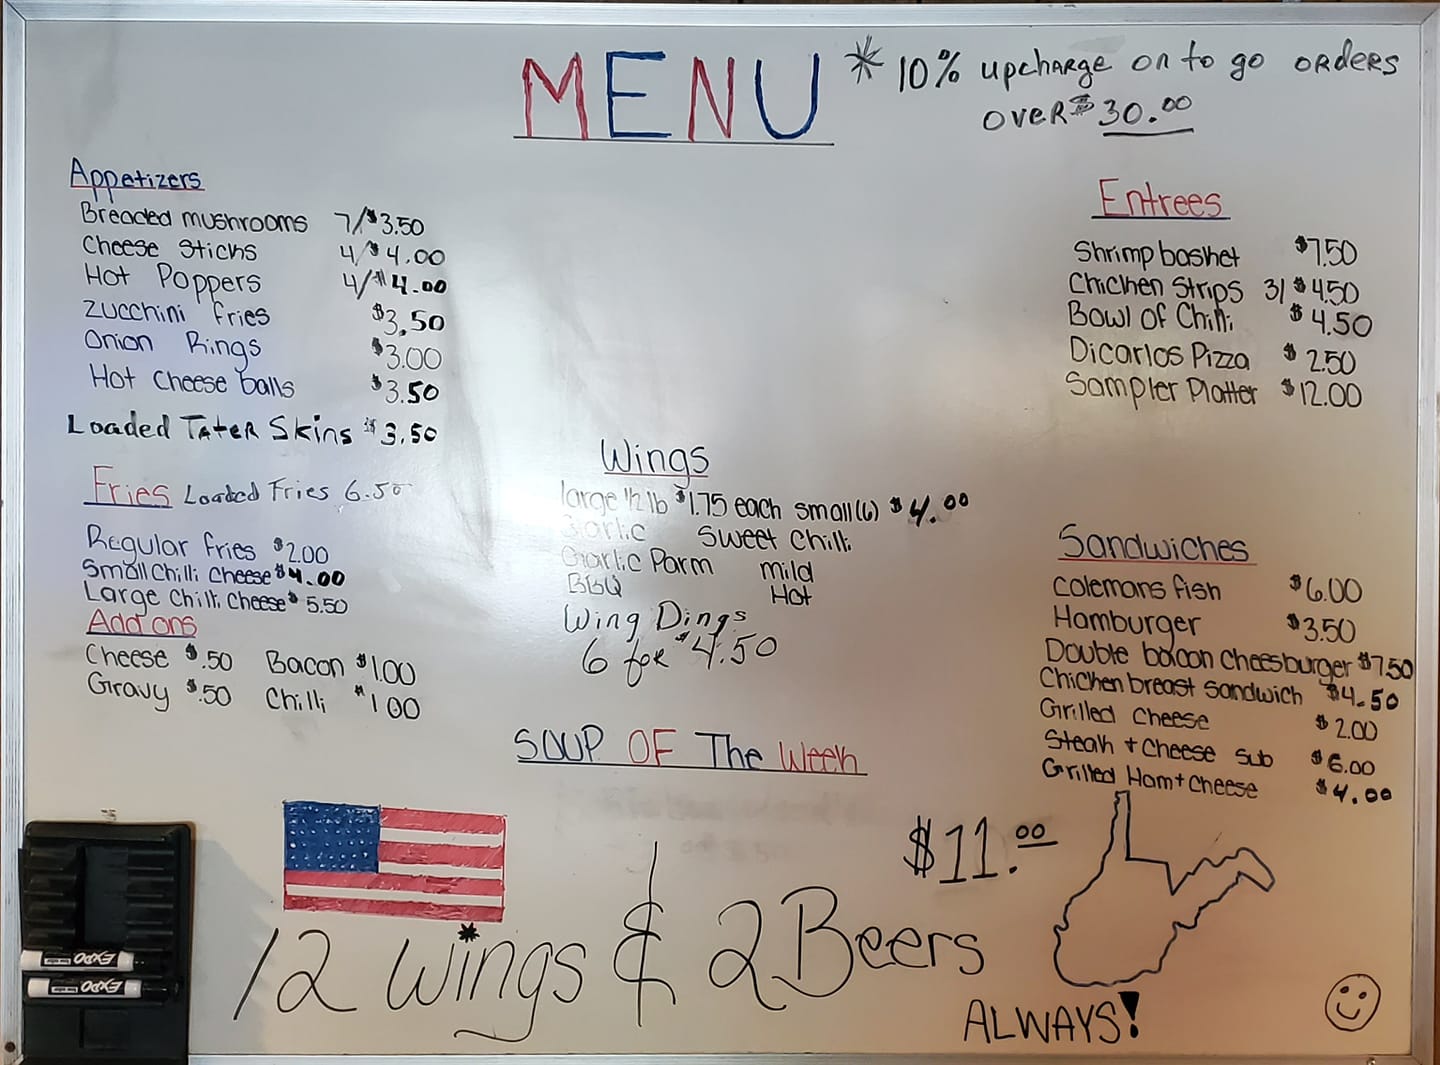 MENU
* 10% upcharge on to go orders
over $30.00
Appetizers
Breaded mushrooms 7/$3.50
Cheese Sticks 4/$4.00
Hot Poppers 4/$4.00
Zucchini fries $3.50
Onion Rings $3.00
Hot Cheese balls $3.50
Loaded Tater Skins $3.50
Fries Loaded Fries 6.50
Regular fries $2.00
Small Chilli Cheese $4.00
Large Chilli Cheese $5.50
Add ons
Cheese $.50 Bacon $1.00
Gravy $.50 Chilli $1.00
Wings
large 1/2 lb $1.75 each small(6) $4.00
Garlic Sweet Chilli
Garlic Parm Mild
BBQ Hot
Wing Dings
6 for $4.50
Entrees
Shrimp basket $7.50
Chicken Strips 3/$4.50
Bowl of Chilli $4.50
Dicarlos Pizza $2.50
Sampler Platter $12.00
Sandwiches
Colemans fish $6.00
Hamburger $3.50
Double bacon Cheesburger $7.50
Chicken breast sandwich $4.50
Grilled Cheese $2.00
Steak + Cheese Sub $6.00
Grilled Ham + Cheese $4.00
SOUP OF The Week
$11.00
12 Wings & 2 Beers
ALWAYS!
EXPO
EXPO